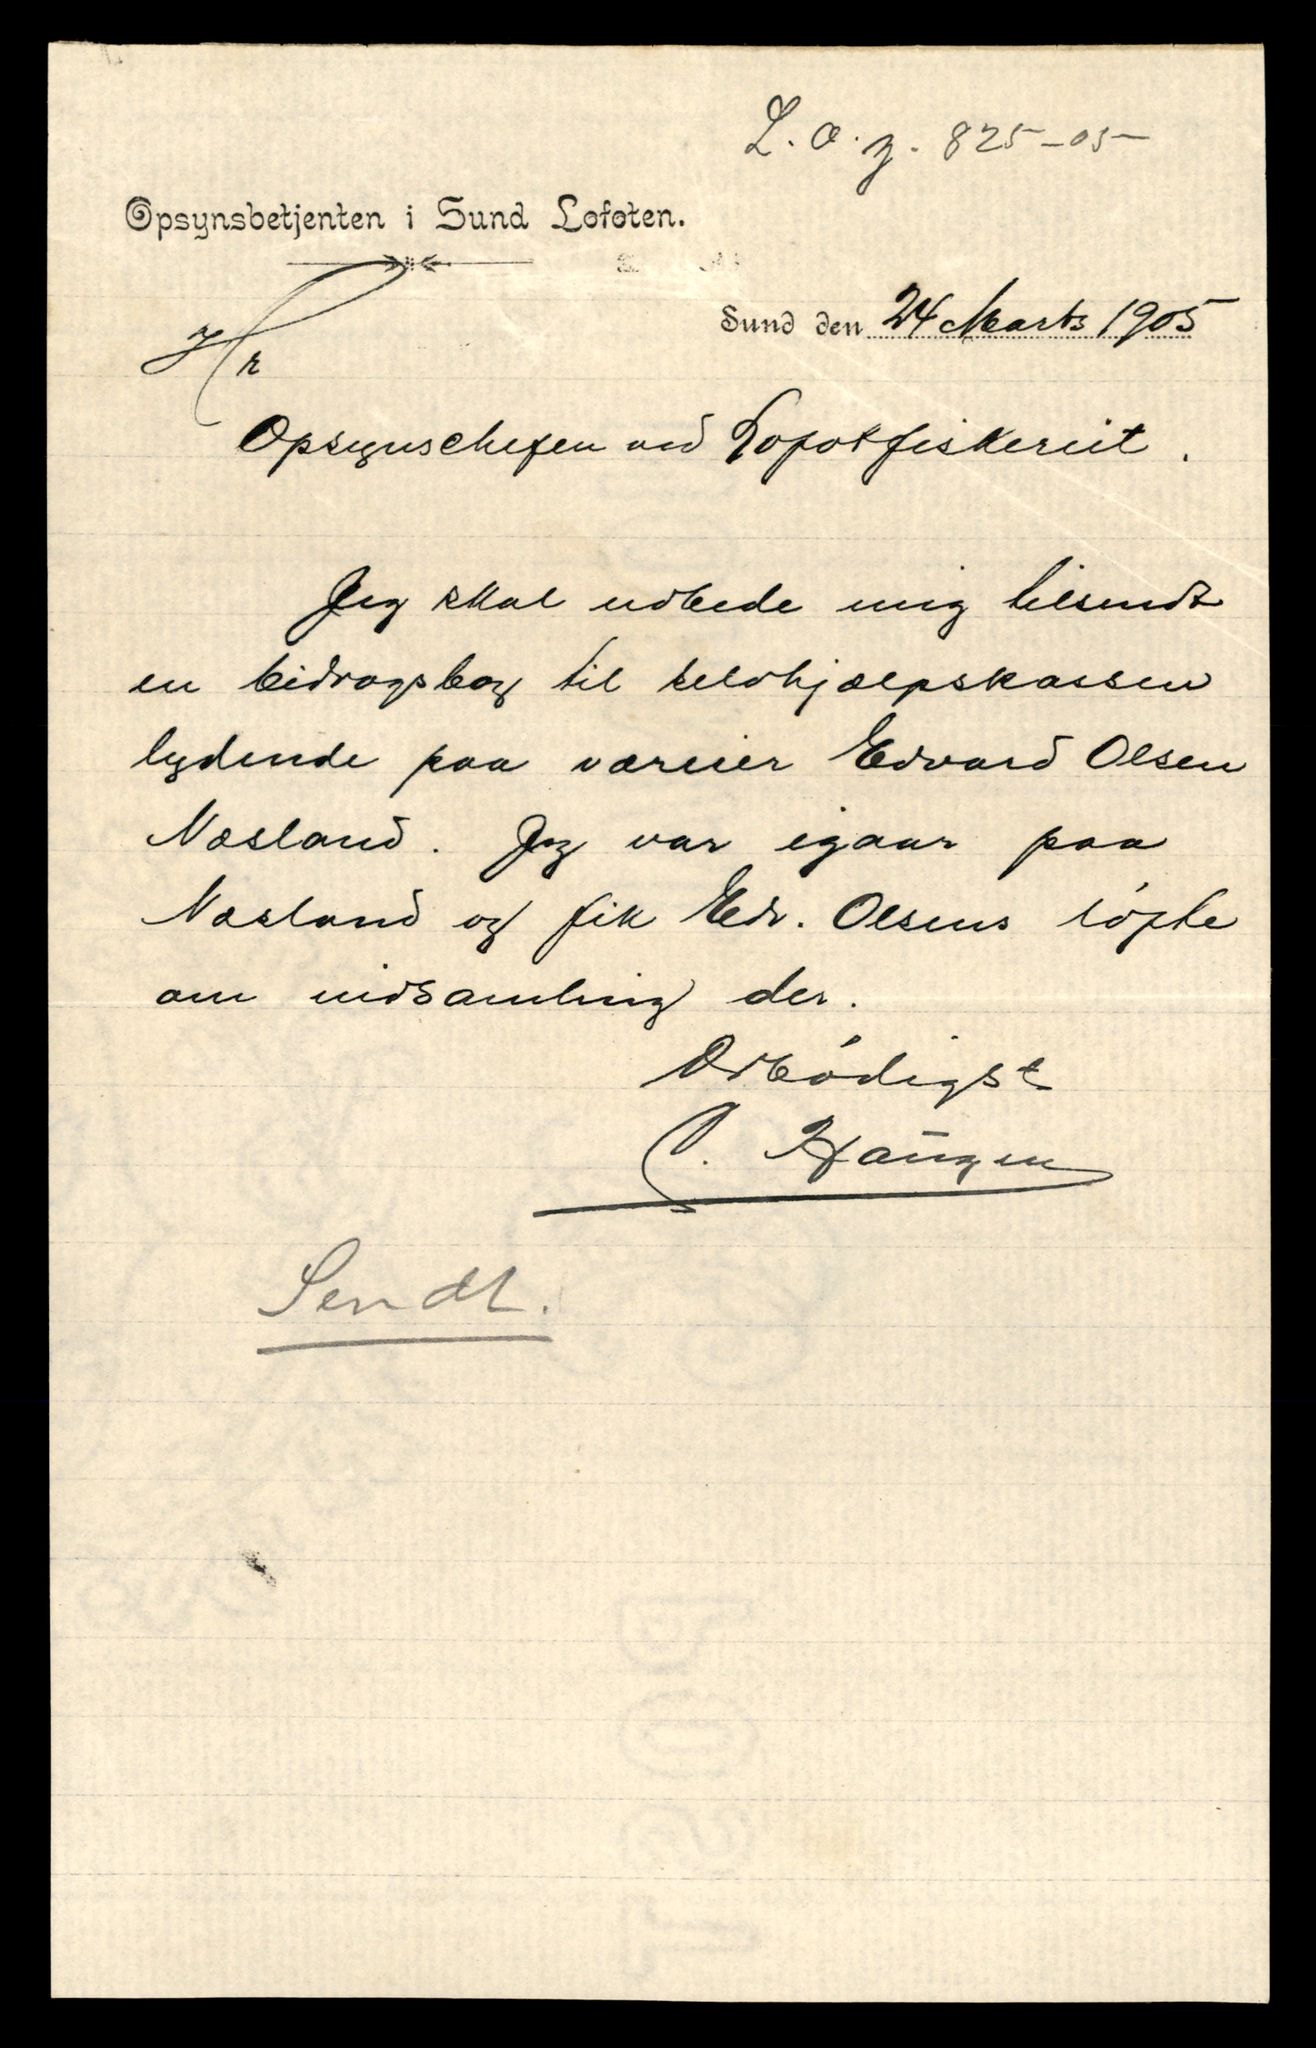 L.O.J. 825-05
Opsynsbetjenten i Sund Lofoten.
Sund den 24 Marts 1905
Hr
Opsynschefen ved Lofotfiskeriet.
Jeg skal udbede mig tilsendt
en bidragsbog til selvhjælpskassen
lydende paa væreier Edvard Olsen
Næsland. Jeg var igaar paa
Næsland og fik Edv. Olsens løfte
om indsamling der.
Ærbødigst
O. Haugen
Sendt.